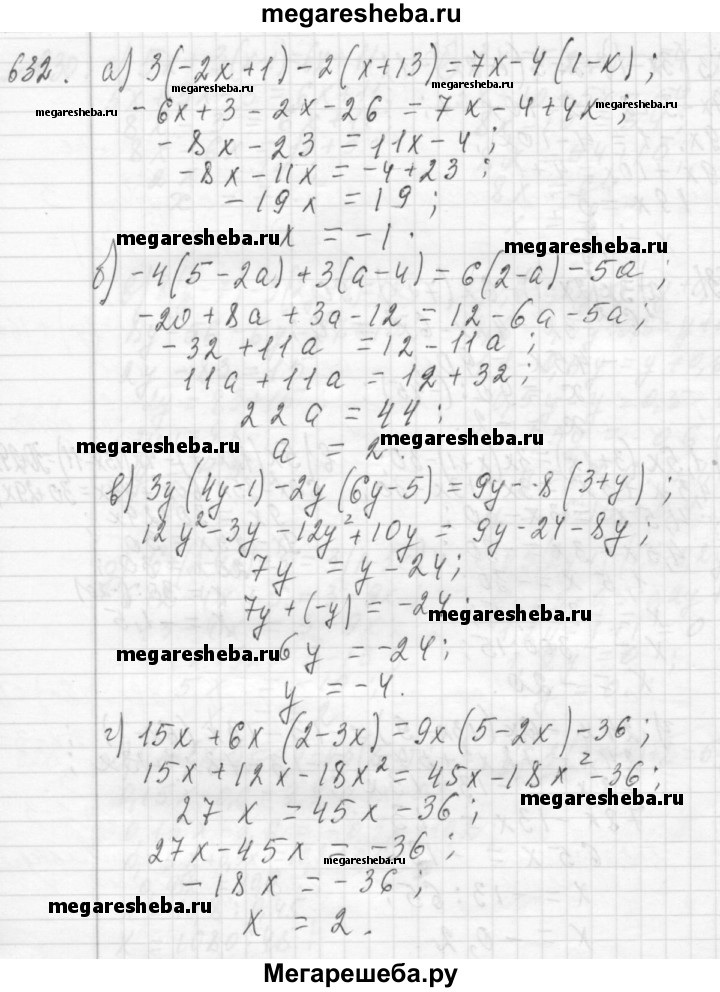 megaresheba.ru
632. а) 3(-2x+1)-2(x+13)=7x-4(1-x);
megaresheba.ru
megaresheba.ru
megaresheba.ru
megaresheba.ru
-6x+3-2x-26=7x-4+4x;
-8x-23=11x-4;
-8x-11x=-4+23;
-19x=19;
megaresheba.ru x=-1.
megaresheba.ru
б) -4(5-2a)+3(a-4)=6(2-a)-5a;
-20+8a+3a-12=12-6a-5a;
-32+11a=12-11a;
11a+11a=12+32;
22a=44;
megaresheba.ru a=2.
в) 3y(4y-1)-2y(6y-5)=9y-8(3+y);
12y²-3y-12y²+10y=9y-24-8y;
7y=y-24;
7y+(-y)=-24;
megaresheba.ru
megaresheba.ru 6y=-24;
y=-4.
г) 15x+6x(2-3x)=9x(5-2x)-36;
15x+12x-18x²=45x-18x²-36;
megaresheba.ru
27x=45x-36;
27x-45x=-36;
megaresheba.ru
-18x=-36;
megaresheba.ru
x=2.
Мегарешеба.ру